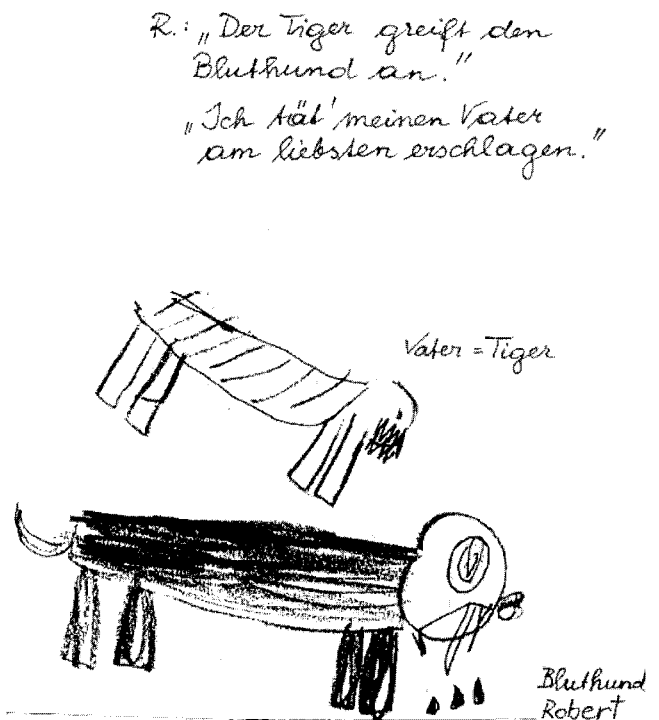 R.: „Der Tiger greift den
Bluthund an."
„Ich tät' meinen Vater
am liebsten erschlagen."
Vater = Tiger
Bluthund
Robert